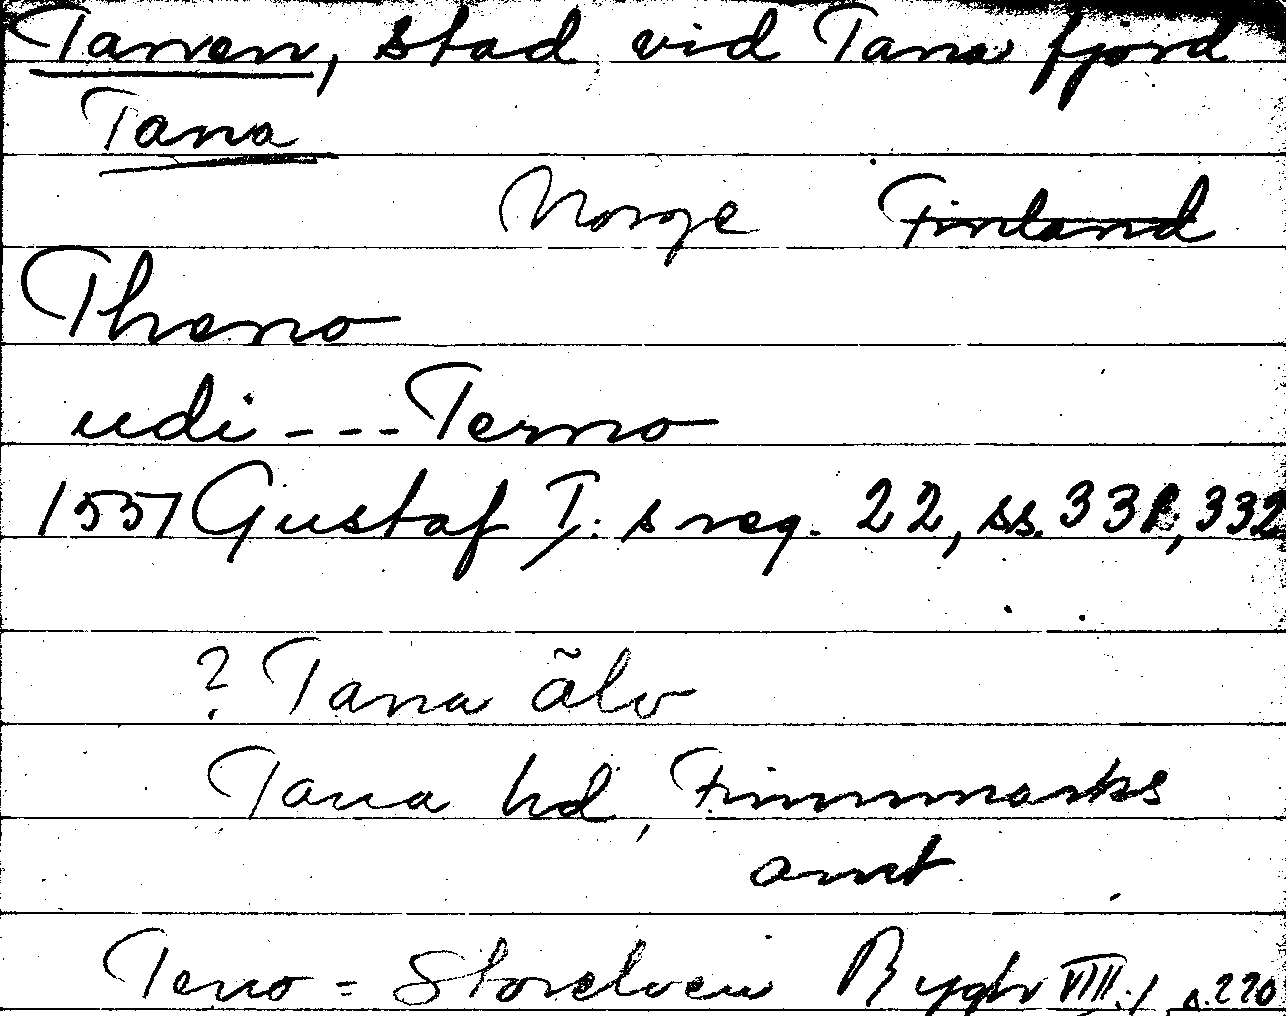 Tanen, stad vid Tana fjord
Tana
Norge Finland
Theno
udi --- Terno
1557 Gustaf I:s reg. 22, ss. 331, 332
? Tana älv
Tana hd, Finnmarks
amt
Teno = Storelven Rygh VIII, s. 220